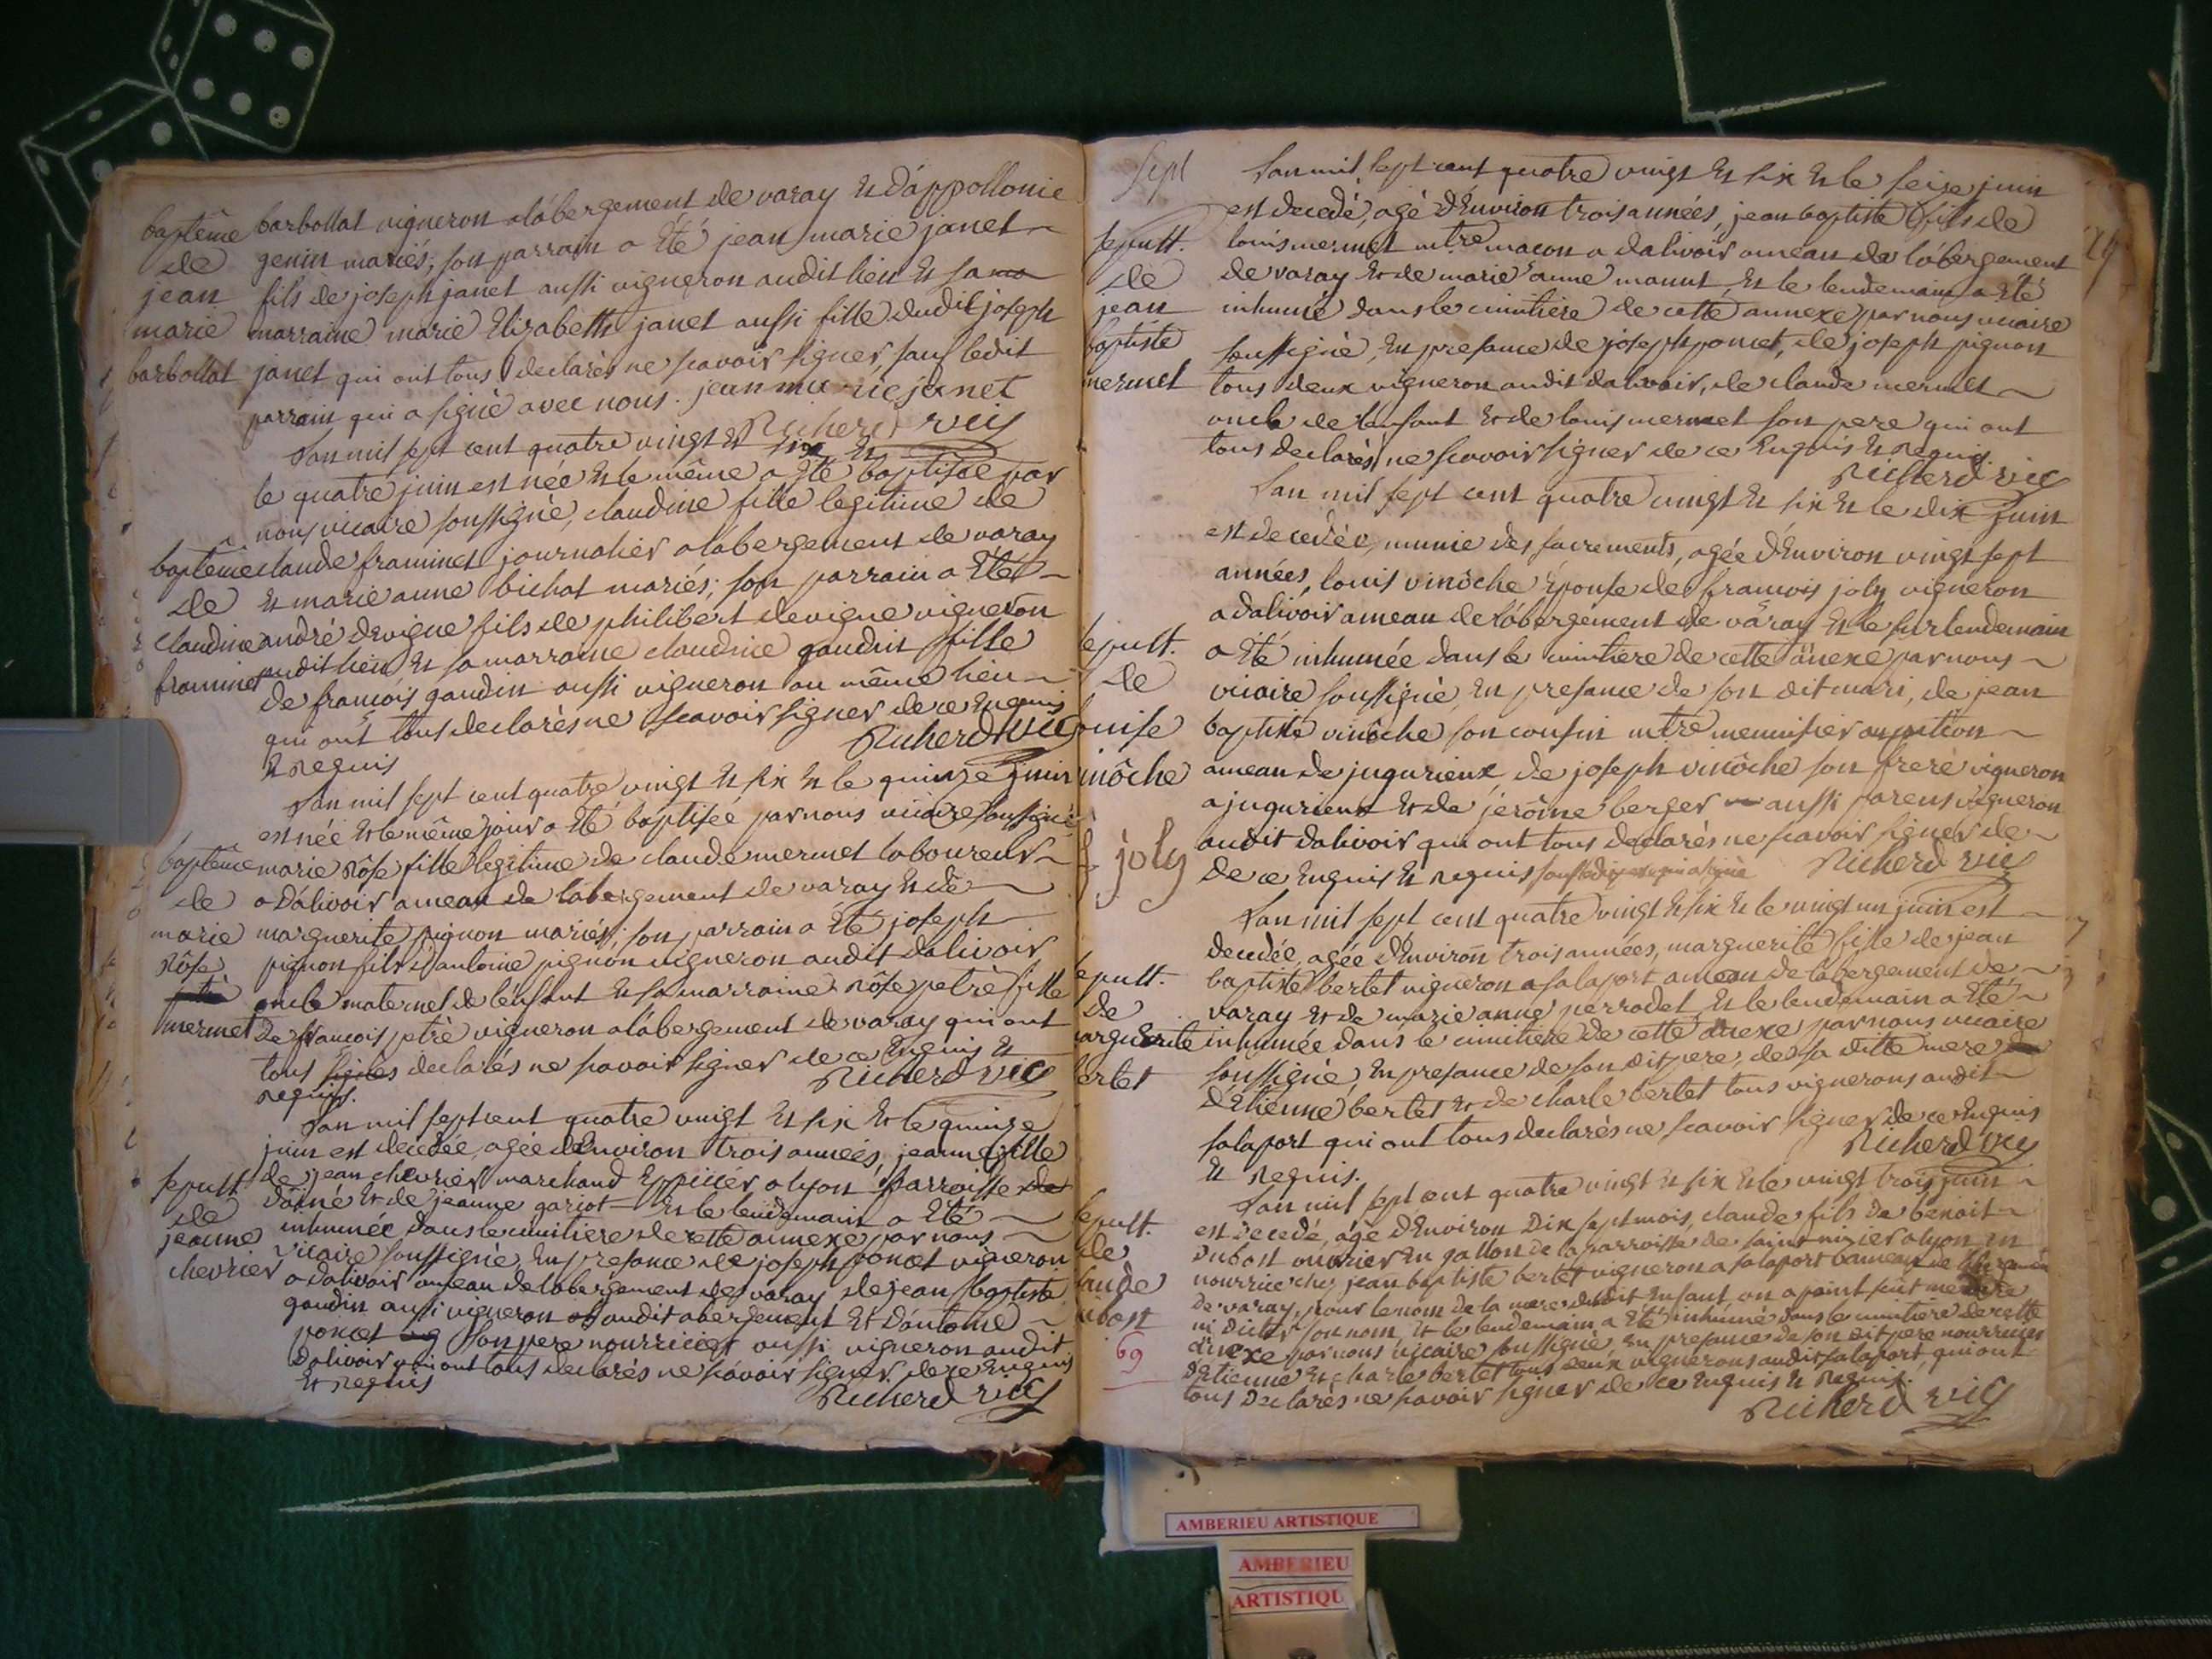 baptême
de
jean
marie
barbollat
barbollat vigneron a l'abergement de varay et d'appollonie
genin mariés; son parrain a été jean marie janet
fils de joseph janet aussi vigneron audit lieu et sa ma
marraine marie Elizabeth janet aussi fille dudit joseph
janet qui ont tous declarés ne scavoir signer, sauf ledit
parrain qui a signé avec nous. jean ma-rie janet
Richerd vic
L'an mil sept cent quatre vingt et six et
le quatre juin est née et le même a été baptisée par
nous vicaire soussigné, claudine fille legitime de
baptême
de
claudine
framinet
claude framinet journalier a labergement de varay
et marie anne bichat mariés; son parrain a été
andré devigne fils de philibert devigne vigneron
audit lieu et sa marraine claudine gaudin fille
de françois gaudin aussi vigneron au même lieu
qui ont tous declarés ne scavoir signer de ce enquis
et requis
Richerd vic
L'an mil sept cent quatre vingt et six et le quinze juin
est née et le même jour a été baptisée par nous vicaire soussigné
baptême
de
marie
rôse
mermet
marie rôse fille legitime de claude mermet laboureur
a dalivoir ameau de labergement de varay et de
marguerite pignon mariés; son parrain a été joseph
pignon fils d'antoine pignon vigneron audit dalivoir
oncle maternel de l'enfant et sa marraine rôse petrè fille
de francois petrè vigneron a l'abergement de varay qui ont
tous signés declarés ne scavoir signer de ce enquis et
requis.
Richerd vic
L'an mil sept cent quatre vingt et six et le quinze
juin est decedée, agée d'environ trois années, jeanne fille
sepult
de
jeanne
chevrier
de jean chevrier marchand eppicier a lyon parroisse
et de jeanne gariot et le lendemain a été
inhumée dans le cimitiere de cette annexe par nous
vicaire soussigné, en presance de joseph poncet vigneron
a dalivoir ameau de labergement de varay de jean baptiste
gaudin aussi vigneron audit abergement et d'antoine
poncet son pere nourricier aussi vigneron audit
dalivoir qui ont tous declarés ne scavoir signer de ce enquis
et requis
Richerd vic
sept
L'an mil sept cent quatre vingt et six et le seise juin
est decedé, agé d'environ trois années, jean baptiste fils de
sepult.
de
jean
baptiste
mermet
louis mermet mtre macon a dalivoir ameau de l'abergement
de varay et de marie anne et le lendemain a été
inhumé dans le cimitiere de cette annexe par nous vicaire
soussigné, en presance de joseph poncet, de joseph pignon
tous deux vigneron audit dalivoir, de claude mermet
oncle de l'enfant et de louis mermet son pere qui ont
tous declarés ne scavoir signer de ce enquis et requis.
Richerd vic
L'an mil sept cent quatre vingt et six et le dix juin
est decedée, munie des sacrements, agée d'environ vingt sept
années, louis vinôche épouse de francois joly vigneron
a dalivoir ameau de l'abergement de varay et le surlendemain
sepult.
de
ouise
inôche
f joly
a été inhumée dans le cimitiere de cette annexe par nous
vicaire soussigné, en presance de son dit mari, de jean
baptiste vinôche son cousin mtre menuisier
ameau de jugurieux de joseph vinôche son frere vigneron
a jugurieux et de jerôme berger aussi parens vigneron
audit dalivoir qui ont tous declarés ne scavoir signer de
de ce enquis et requis
Richerd vic
L'an mil sept cent quatre vingt et six et le vingt un juin est
decedée, agée d'environ trois années, marguerite fille de jean
sepult.
de
arguerite
ertet
baptiste bertet vigneron a salaport ameau de labergement de
varay et de marie anne perrodet et le lendemain a été
inhumée dans le cimitiere de cette anexe par nous vicaire
soussigné, en presance de son dit pere, de sa ditte mere
d'etienne bertet et de charle bertet tous vignerons audit
salaport qui ont tous declarés ne scavoir signer de ce enquis
et requis.
Richerd vic
L'an mil sept cent quatre vingt et six et le vingt trois juin
est decedé, agé d'environ dix sept mois, claude fils de benoit
sepult.
de
laude
ubost
69
dubost ouvrier en gallon de la parroisse de saint nizier a lyon en
nourrice chez jean baptiste bertet vigneron a salaport ameau de
de varay, pour le nom de la mere dudit enfant on a point
ni dicter son nom, et le lendemain a été inhumé dans le cimitiere de cette
anexe par nous vicaire soussigné, en presance de son dit pere nourricier
d'etienne et charle bertet tous deux vignerons audit salaport, qui ont
tous declarés ne scavoir signer de ce enquis et requis.
Richerd vic
AMBERIEU ARTISTIQUE
AMBERIEU
ARTISTIQU